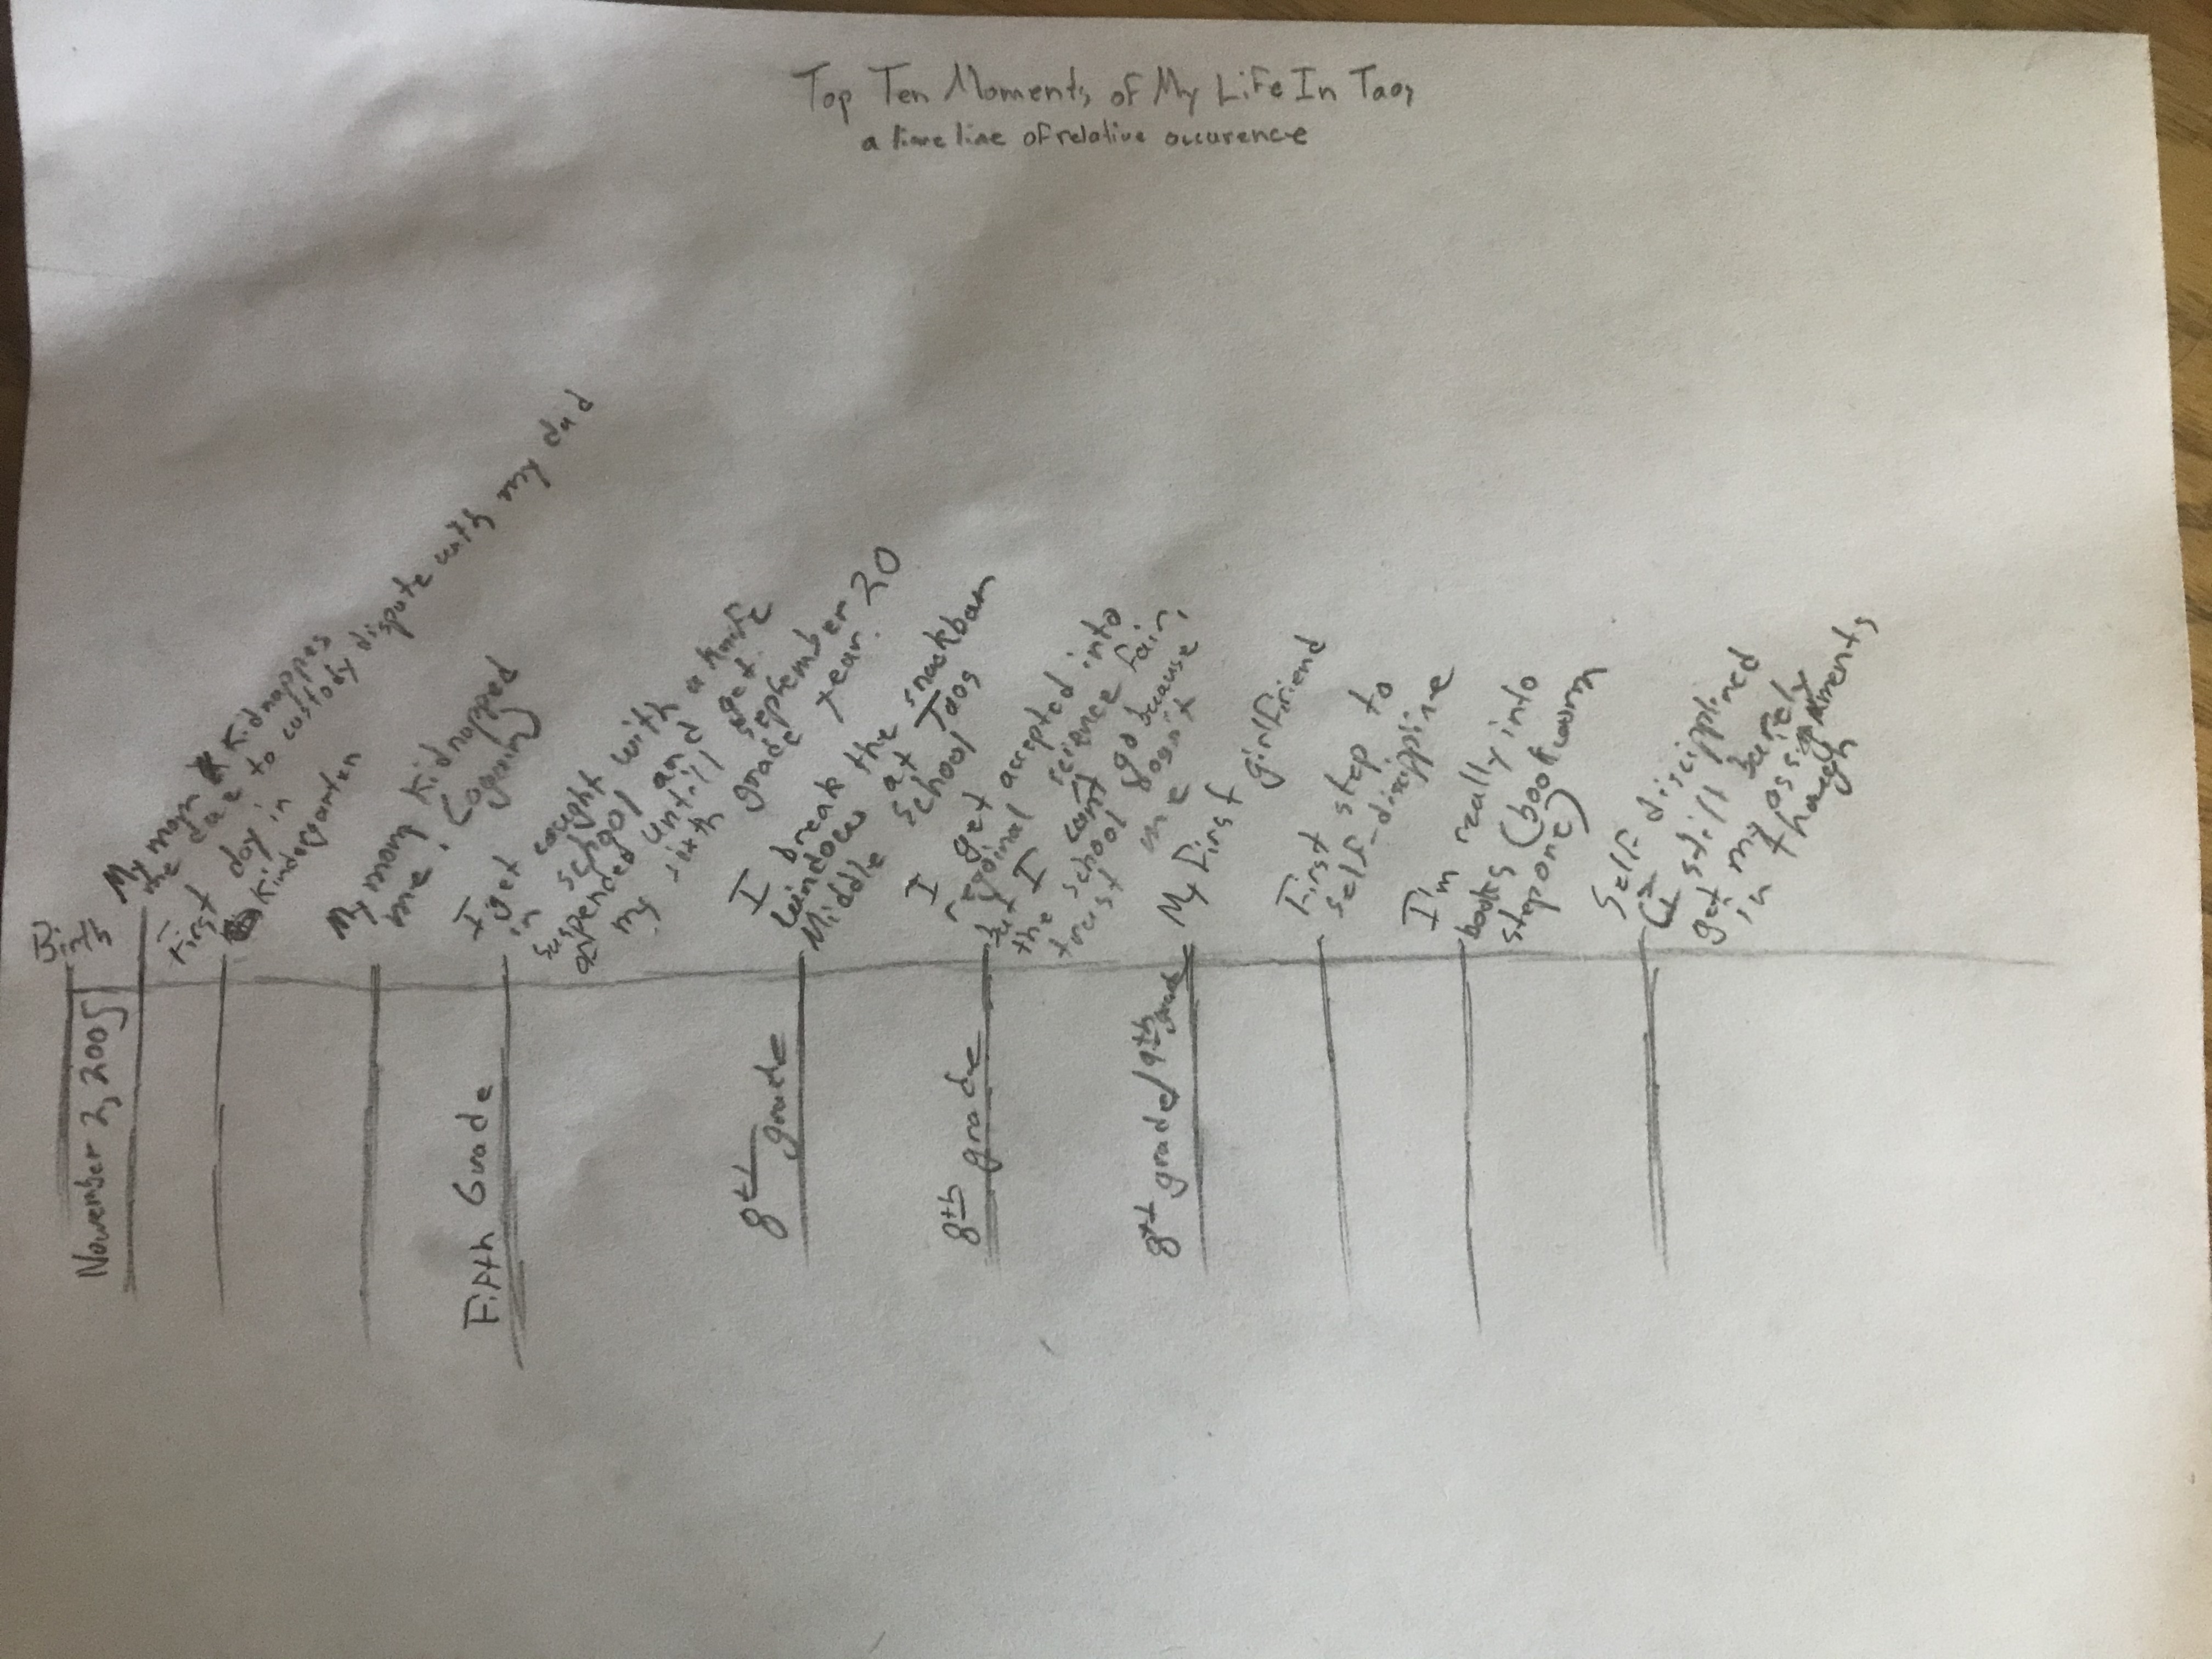 Top Ten Moments of My Life In Taos
a time line of relative occurence
November 2, 2005
Birth
My mom kidnappes
me due to custody dispute with my dad
First day in
kindergarten
My mom kidnapped
me. (again)
Fifth Grade
I get cought with a knife
in school and get
suspended untill september 20
of my sixth grade year.
8th grade
I break the snackbar
window at Taos
Middle school
8th grade
I get accepted into
regoinal science fair,
but I can't go because
the school dosn't
trust me
8th grade/9th grade
My first girlfriend
First step to
self-discippline
I'm really into
books (bookworm
step one)
Self discipplined
(I still barely
get my assignments
in though